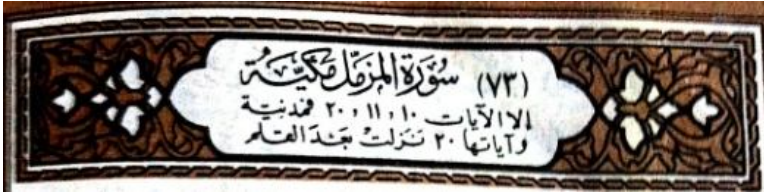 (٧٣) سُورَة المزمّل مَكيّة
إلا الآيات ١٠ ، ١١ ، ٢٠ فمدنية
وآياتها ٢٠ نزلت بَعدَ القلم